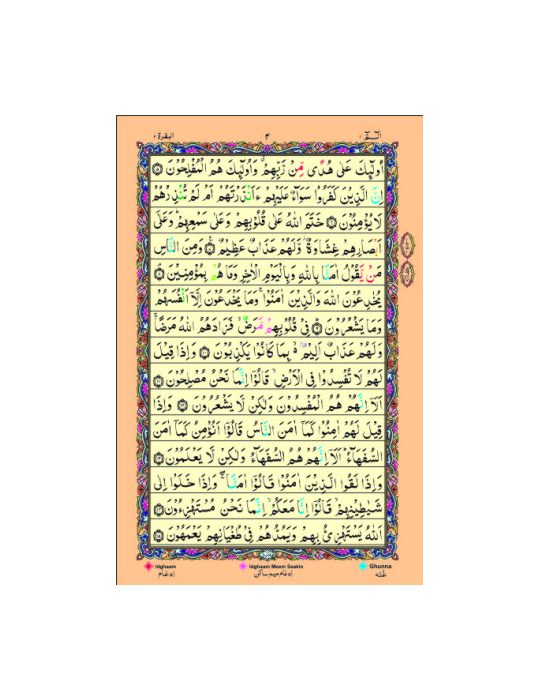 البقرة ٢
٣
الٓمّٓ ١
اُولٰٓئِكَ عَلٰى هُدًى مِّنْ رَّبِّهِمْ وَاُولٰٓئِكَ هُمُ الْمُفْلِحُوْنَ ۝٥
اِنَّ الَّذِيْنَ كَفَرُوْا سَوَآءٌ عَلَيْهِمْ ءَاَنْذَرْتَهُمْ اَمْ لَمْ تُنْذِرْهُمْ
لَا يُؤْمِنُوْنَ ۝٦ خَتَمَ اللّٰهُ عَلٰى قُلُوْبِهِمْ وَعَلٰى سَمْعِهِمْ وَعَلٰٓى
اَبْصَارِهِمْ غِشَاوَةٌ وَّلَهُمْ عَذَابٌ عَظِيْمٌ ۝٧ وَمِنَ النَّاسِ
مَنْ يَّقُوْلُ اٰمَنَّا بِاللّٰهِ وَبِالْيَوْمِ الْاٰخِرِ وَمَا هُمْ بِمُؤْمِنِيْنَ ۝٨
يُخٰدِعُوْنَ اللّٰهَ وَالَّذِيْنَ اٰمَنُوْا وَمَا يَخْدَعُوْنَ اِلَّآ اَنْفُسَهُمْ
وَمَا يَشْعُرُوْنَ ۝٩ فِيْ قُلُوْبِهِمْ مَّرَضٌ فَزَادَهُمُ اللّٰهُ مَرَضًا
وَلَهُمْ عَذَابٌ اَلِيْمٌ بِمَا كَانُوْا يَكْذِبُوْنَ ۝١٠ وَاِذَا قِيْلَ
لَهُمْ لَا تُفْسِدُوْا فِى الْاَرْضِ قَالُوْٓا اِنَّمَا نَحْنُ مُصْلِحُوْنَ ۝١١
اَلَآ اِنَّهُمْ هُمُ الْمُفْسِدُوْنَ وَلٰكِنْ لَّا يَشْعُرُوْنَ ۝١٢ وَاِذَا
قِيْلَ لَهُمْ اٰمِنُوْا كَمَآ اٰمَنَ النَّاسُ قَالُوْٓا اَنُؤْمِنُ كَمَآ اٰمَنَ
السُّفَهَآءُ اَلَآ اِنَّهُمْ هُمُ السُّفَهَآءُ وَلٰكِنْ لَّا يَعْلَمُوْنَ ۝١٣
وَاِذَا لَقُوا الَّذِيْنَ اٰمَنُوْا قَالُوْٓا اٰمَنَّا وَاِذَا خَلَوْا اِلٰى
شَيٰطِيْنِهِمْ قَالُوْٓا اِنَّا مَعَكُمْ اِنَّمَا نَحْنُ مُسْتَهْزِءُوْنَ ۝١٤
اَللّٰهُ يَسْتَهْزِئُ بِهِمْ وَيَمُدُّهُمْ فِيْ طُغْيَانِهِمْ يَعْمَهُوْنَ ۝١٥
Idghaam
ادغام
Idghaam Meem Saakin
ادغام میم ساکن
Ghunna
غنّہ